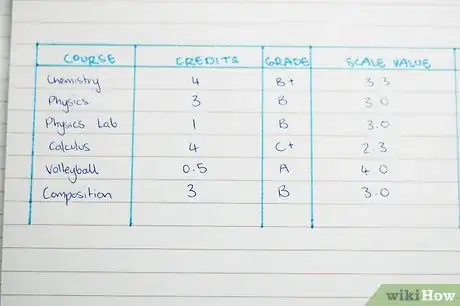 COURSE CREDITS GRADE SCALE VALUE
Chemistry 4 B+ 3.3
Physics 3 B 3.0
Physics Lab 1 B 3.0
Calculus 4 C+ 2.3
Volleyball 0.5 A 4.0
Composition 3 B 3.0
wikiHow